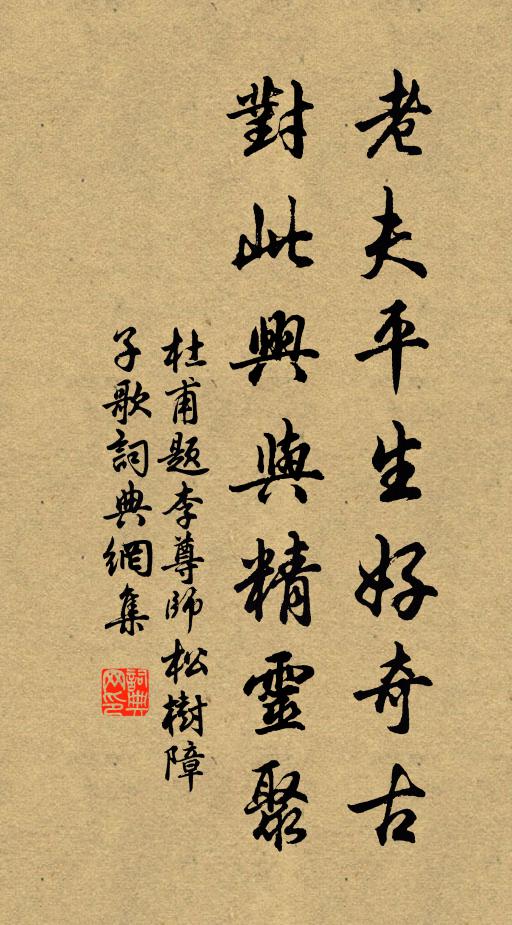 老夫平生好奇古
對此興與精靈聚
杜甫題李尊師松樹障
子歌詞典網集
詞典
网印